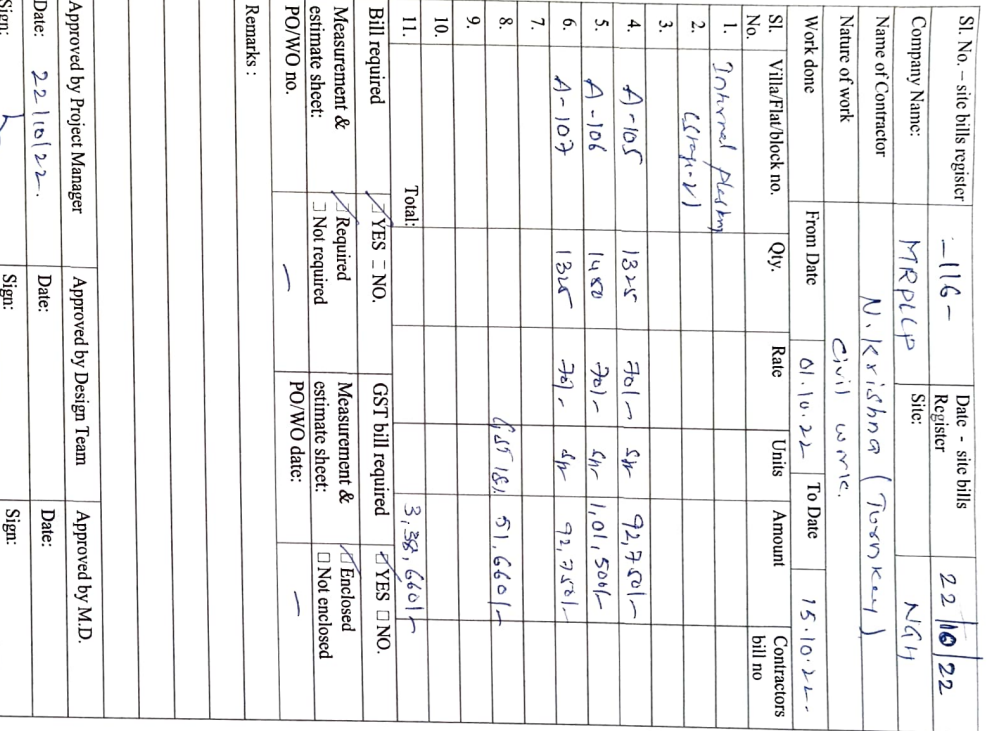 Sl. No. – site bills register -116- Date - site bills Register 22/10/22
Company Name: MRPLLP Site: NGH
Name of Contractor N. Krishna (Turnkey)
Nature of work Civil work.
Work done From Date 01.10.22 To Date 15.10.22.
Sl. No. Villa/Flat/block no. Qty. Rate Units Amount Contractors bill no
1. Internal plastering
2.
3.
4. A-105 1325 70/- sft 92,750/-
5. A-106 1450 70/- sft 1,01,500/-
6. A-107 1325 70/- sft 92,750/-
7.
8. GST 18% 51,660/-
9.
10.
11. Total: 3,38,660/-
Bill required ☑ YES □ NO. GST bill required ☑ YES □ NO.
Measurement & estimate sheet: ☑ Required □ Not required Measurement & estimate sheet: ☑ Enclosed □ Not enclosed
PO/WO no. — PO/WO date: —
Remarks :
Approved by Project Manager Approved by Design Team Approved by M.D.
Date: 22/10/22. Date: Date:
Sign: Sign: Sign: